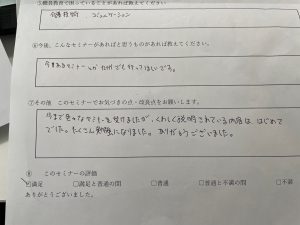 ⑤職員教育で困っていることがあれば教えてください。
介護技術　コミュニケーション
⑥今後、こんなセミナーがあればと思うものがあれば教えてください。
⑦その他　このセミナーでお気づきの点・改良点をお願いします。
今まで色々なセミナーを受けましたが、くわしく説明されている内容は はじめて
でした。たくさん勉強になりました。ありがとうございました。
⑧　このセミナーの評価
☑満足　□満足と普通の間　□普通　□普通と不満の間　□不満
ありがとうございました。